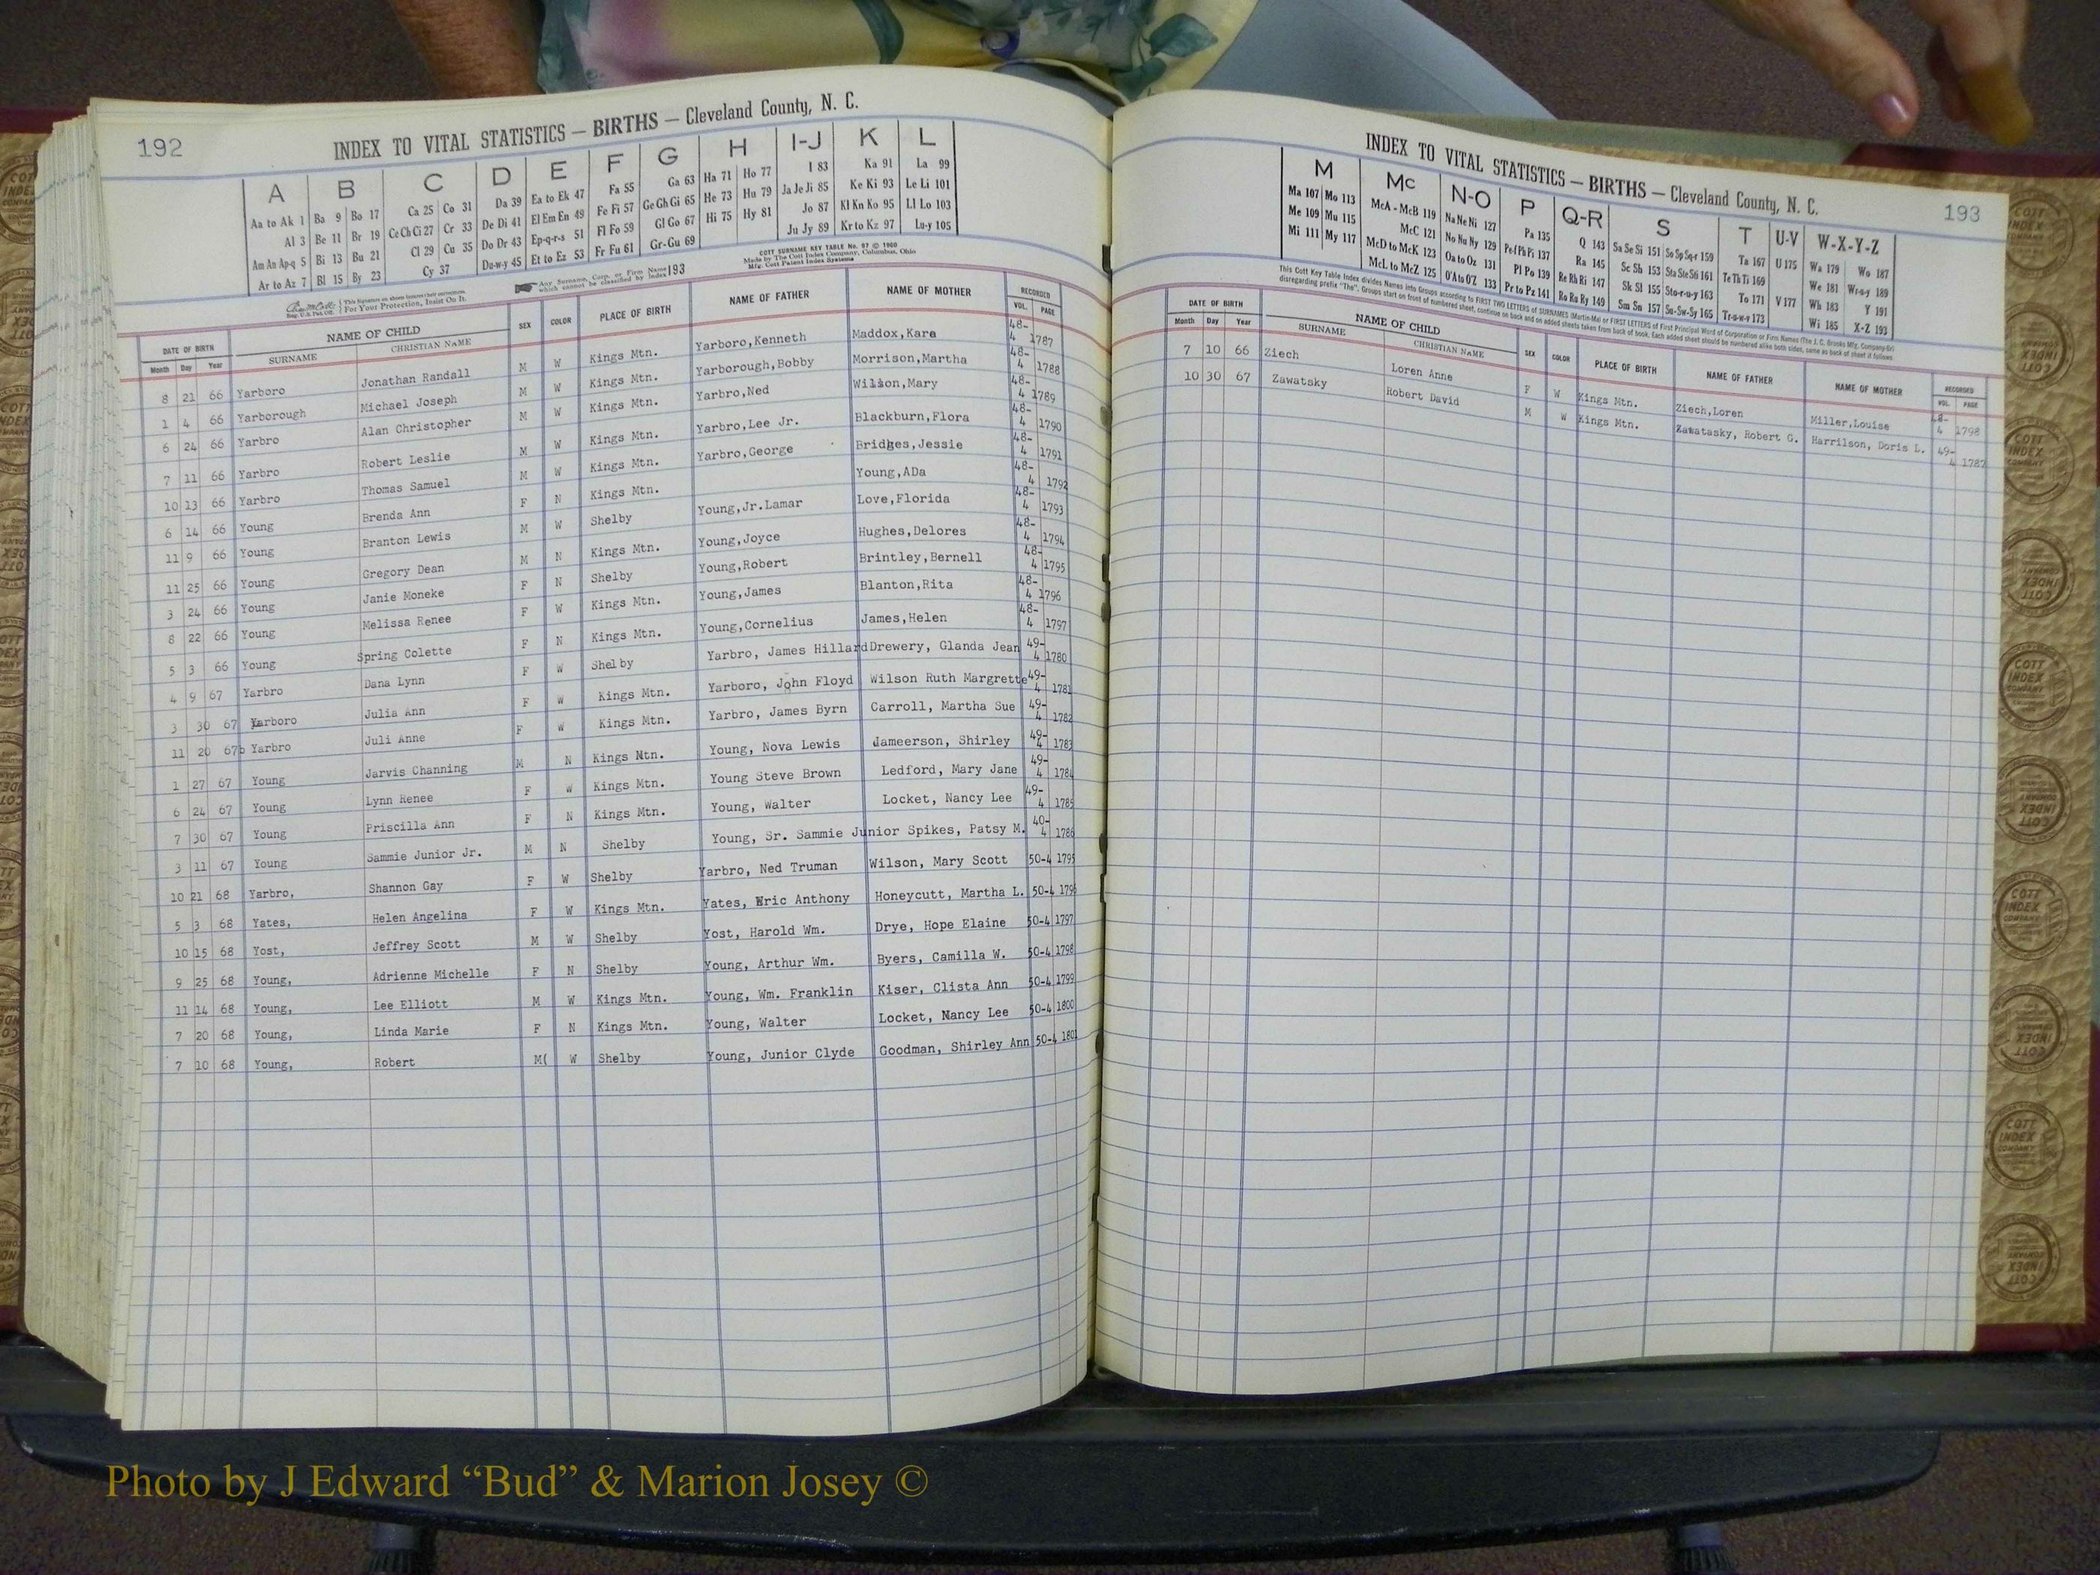 192
INDEX TO VITAL STATISTICS — BIRTHS — Cleveland County, N. C.
A B C D E F G H I-J K L
Aa to Ak 1 Ba 9 Bo 17 Ca 25 Co 31 Da 39 Ea to Ek 47 Fa 55 Ga 63 Ha 71 Ho 77 I 83 Ka 91 La 99
Al 3 Be 11 Br 19 Ce Ch Ci 27 Cr 33 De Di 41 El Em En 49 Fe Fi 57 Ge Gh Gi 65 He 73 Hu 79 Ja Je Ji 85 Ke Ki 93 Le Li 101
Am An Ap-q 5 Bi 13 Bu 21 Cl 29 Cu 35 Do Dr 43 Ep-q-r-s 51 Fl Fo 59 Gl Go 67 Hi 75 Hy 81 Jo 87 Kl Kn Ko 95 Ll Lo 103
Ar to Az 7 Bl 15 By 23 Cy 37 Du-w-y 45 Et to Ez 53 Fr Fu 61 Gr-Gu 69 Ju Jy 89 Kr to Kz 97 Lu-y 105
For Your Protection, Insist On It.
Any Surname, Corp. or Firm Name which cannot be classified by index 193
COTT SURNAME KEY TABLE No. 97 © 1960
Made by The Cott Index Company, Columbus, Ohio
Mfg. Cott Patent Index Systems
DATE OF BIRTH NAME OF CHILD SEX COLOR PLACE OF BIRTH NAME OF FATHER NAME OF MOTHER RECORDED
Month Day Year SURNAME CHRISTIAN NAME VOL. PAGE
8 21 66 Yarboro Jonathan Randall M W Kings Mtn. Yarboro,Kenneth Maddox,Kara 48-4 1787
1 4 66 Yarborough Michael Joseph M W Kings Mtn. Yarborough,Bobby Morrison,Martha 48-4 1788
6 24 66 Yarbro Alan Christopher M W Kings Mtn. Yarbro,Ned Wilson,Mary 48-4 1789
7 11 66 Yarbro Robert Leslie M W Kings Mtn. Yarbro,Lee Jr. Blackburn,Flora 48-4 1790
10 13 66 Yarbro Thomas Samuel M W Kings Mtn. Yarbro,George Bridges,Jessie 48-4 1791
6 14 66 Young Brenda Ann F N Kings Mtn. Young,ADa 48-4 1792
11 9 66 Young Branton Lewis M W Shelby Young,Jr.Lamar Love,Florida 48-4 1793
11 25 66 Young Gregory Dean M N Kings Mtn. Young,Joyce Hughes,Delores 48-4 1794
3 24 66 Young Janie Moneke F N Shelby Young,Robert Brintley,Bernell 48-4 1795
8 22 66 Young Melissa Renee F W Kings Mtn. Young,James Blanton,Rita 48-4 1796
5 3 66 Young Spring Colette F N Kings Mtn. Young,Cornelius James,Helen 48-4 1797
4 9 67 Yarbro Dana Lynn F W Shelby Yarbro, James Hillard Drewery, Glanda Jean 49-4 1780
3 30 67 Yarboro Julia Ann F W Kings Mtn. Yarboro, John Floyd Wilson Ruth Margrette 49-4 1781
11 20 67 Yarbro Juli Anne F W Kings Mtn. Yarbro, James Byrn Carroll, Martha Sue 49-4 1782
1 27 67 Young Jarvis Channing M N Kings Mtn. Young, Nova Lewis Jameerson, Shirley 49-4 1783
6 24 67 Young Lynn Renee F W Kings Mtn. Young Steve Brown Ledford, Mary Jane 49-4 1784
7 30 67 Young Priscilla Ann F N Kings Mtn. Young, Walter Locket, Nancy Lee 49-4 1785
3 11 67 Young Sammie Junior Jr. M N Shelby Young, Sr. Sammie Junior Spikes, Patsy M. 40-4 1786
10 21 68 Yarbro, Shannon Gay F W Shelby Yarbro, Ned Truman Wilson, Mary Scott 50-4 1795
5 3 68 Yates, Helen Angelina F W Kings Mtn. Yates, Eric Anthony Honeycutt, Martha L. 50-4 1796
10 15 68 Yost, Jeffrey Scott M W Shelby Yost, Harold Wm. Drye, Hope Elaine 50-4 1797
9 25 68 Young, Adrienne Michelle F N Shelby Young, Arthur Wm. Byers, Camilla W. 50-4 1798
11 14 68 Young, Lee Elliott M W Kings Mtn. Young, Wm. Franklin Kiser, Clista Ann 50-4 1799
7 20 68 Young, Linda Marie F N Kings Mtn. Young, Walter Locket, Nancy Lee 50-4 1800
7 10 68 Young, Robert M( W Shelby Young, Junior Clyde Goodman, Shirley Ann 50-4 1801
INDEX TO VITAL STATISTICS — BIRTHS — Cleveland County, N. C.
193
M Mc N-O P Q-R S T U-V W-X-Y-Z
Ma 107 Mo 113 McA - McB 119 Na Ne Ni 127 Pa 135 Q 143 Sa Se Si 151 So Sp Sq-r 159 Ta 167 U 175 Wa 179 Wo 187
Me 109 Mu 115 McC 121 No Nu Ny 129 Pe Ph Pi 137 Ra 145 Sc Sh 153 Sta Ste Sti 161 Te Th Ti 169 We 181 Wr-u-y 189
Mi 111 My 117 McD to McK 123 Oa to Oz 131 Pl Po 139 Re Rh Ri 147 Sk Sl 155 Sto-r-u-y 163 To 171 V 177 Wh 183 Y 191
McL to McZ 125 O'A to O'Z 133 Pr to Pz 141 Ro Ru Ry 149 Sm Sn 157 Su-Sw-Sy 165 Tr-u-w-y 173 Wi 185 X-Z 193
This Cott Key Table Index divides Names into Groups according to FIRST TWO LETTERS of SURNAMES (Martin-Ma) or FIRST LETTERS of First Principal Word of Corporation or Firm Names (The J. C. Brooks Mfg. Company-Br)
disregarding prefix "The". Groups start on front of numbered sheet, continue on back and on added sheets taken from back of book. Each added sheet should be numbered alike both sides, same as back of sheet it follows
DATE OF BIRTH NAME OF CHILD SEX COLOR PLACE OF BIRTH NAME OF FATHER NAME OF MOTHER RECORDED
Month Day Year SURNAME CHRISTIAN NAME VOL. PAGE
7 10 66 Ziech Loren Anne F W Kings Mtn. Ziech,Loren Miller,Louise 48-4 1798
10 30 67 Zawatsky Robert David M W Kings Mtn. Zawatasky, Robert G. Harrilson, Doris L. 49-4 1787
COTT INDEX COMPANY
Photo by J Edward “Bud” & Marion Josey ©